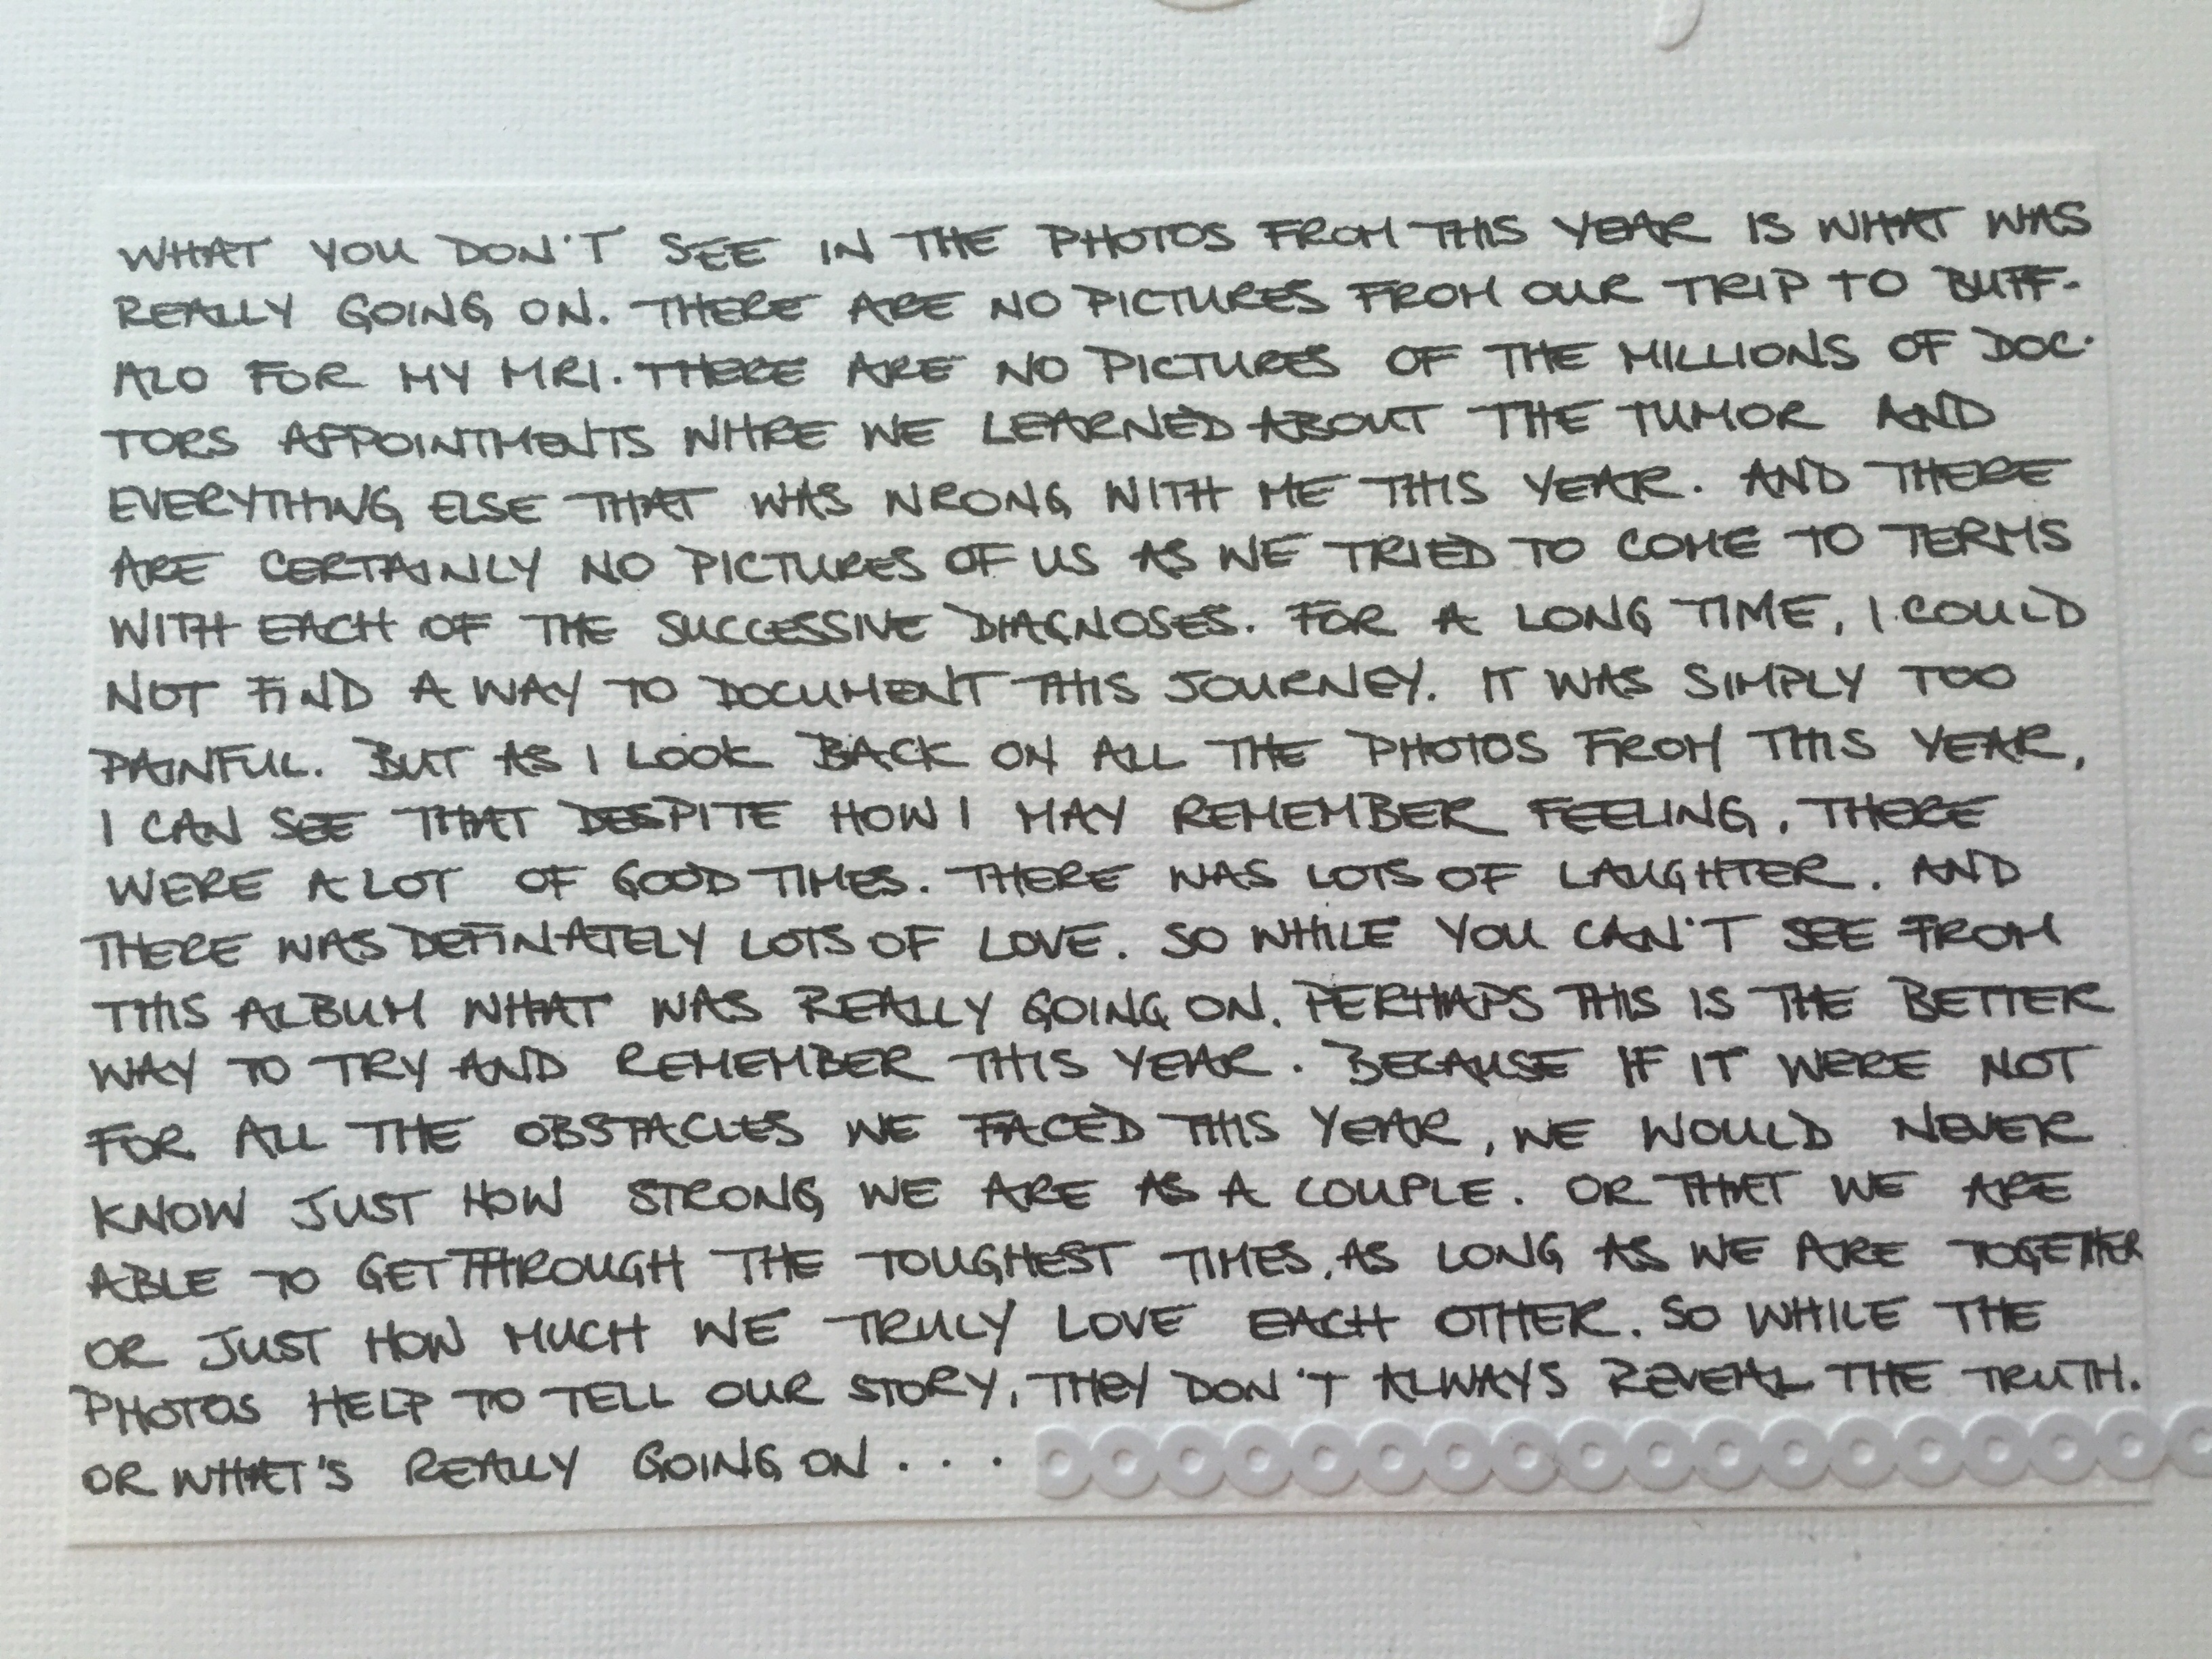 WHAT YOU DON'T SEE IN THE PHOTOS FROM THIS YEAR IS WHAT WAS
REALLY GOING ON. THERE ARE NO PICTURES FROM OUR TRIP TO BUFF-
ALO FOR MY MRI. THERE ARE NO PICTURES OF THE MILLIONS OF DOC-
TORS APPOINTMENTS WHRE WE LEARNED ABOUT THE TUMOR AND
EVERYTHING ELSE THAT WAS WRONG WITH ME THIS YEAR. AND THERE
ARE CERTAINLY NO PICTURES OF US AS WE TRIED TO COME TO TERMS
WITH EACH OF THE SUCCESSIVE DIAGNOSES. FOR A LONG TIME, I COULD
NOT FIND A WAY TO DOCUMENT THIS JOURNEY. IT WAS SIMPLY TOO
PAINFUL. BUT AS I LOOK BACK ON ALL THE PHOTOS FROM THIS YEAR,
I CAN SEE THAT DESPITE HOW I MAY REMEMBER FEELING, THERE
WERE A LOT OF GOOD TIMES. THERE WAS LOTS OF LAUGHTER. AND
THERE WAS DEFINATELY LOTS OF LOVE. SO WHILE YOU CAN'T SEE FROM
THIS ALBUM WHAT WAS REALLY GOING ON, PERHAPS THIS IS THE BETTER
WAY TO TRY AND REMEMBER THIS YEAR. BECAUSE IF IT WERE NOT
FOR ALL THE OBSTACLES WE FACED THIS YEAR, WE WOULD NEVER
KNOW JUST HOW STRONG WE ARE AS A COUPLE. OR THAT WE ARE
ABLE TO GET THROUGH THE TOUGHEST TIMES, AS LONG AS WE ARE TOGETHER
OR JUST HOW MUCH WE TRULY LOVE EACH OTHER. SO WHILE THE
PHOTOS HELP TO TELL OUR STORY, THEY DON'T ALWAYS REVEAL THE TRUTH.
OR WHAT'S REALLY GOING ON...